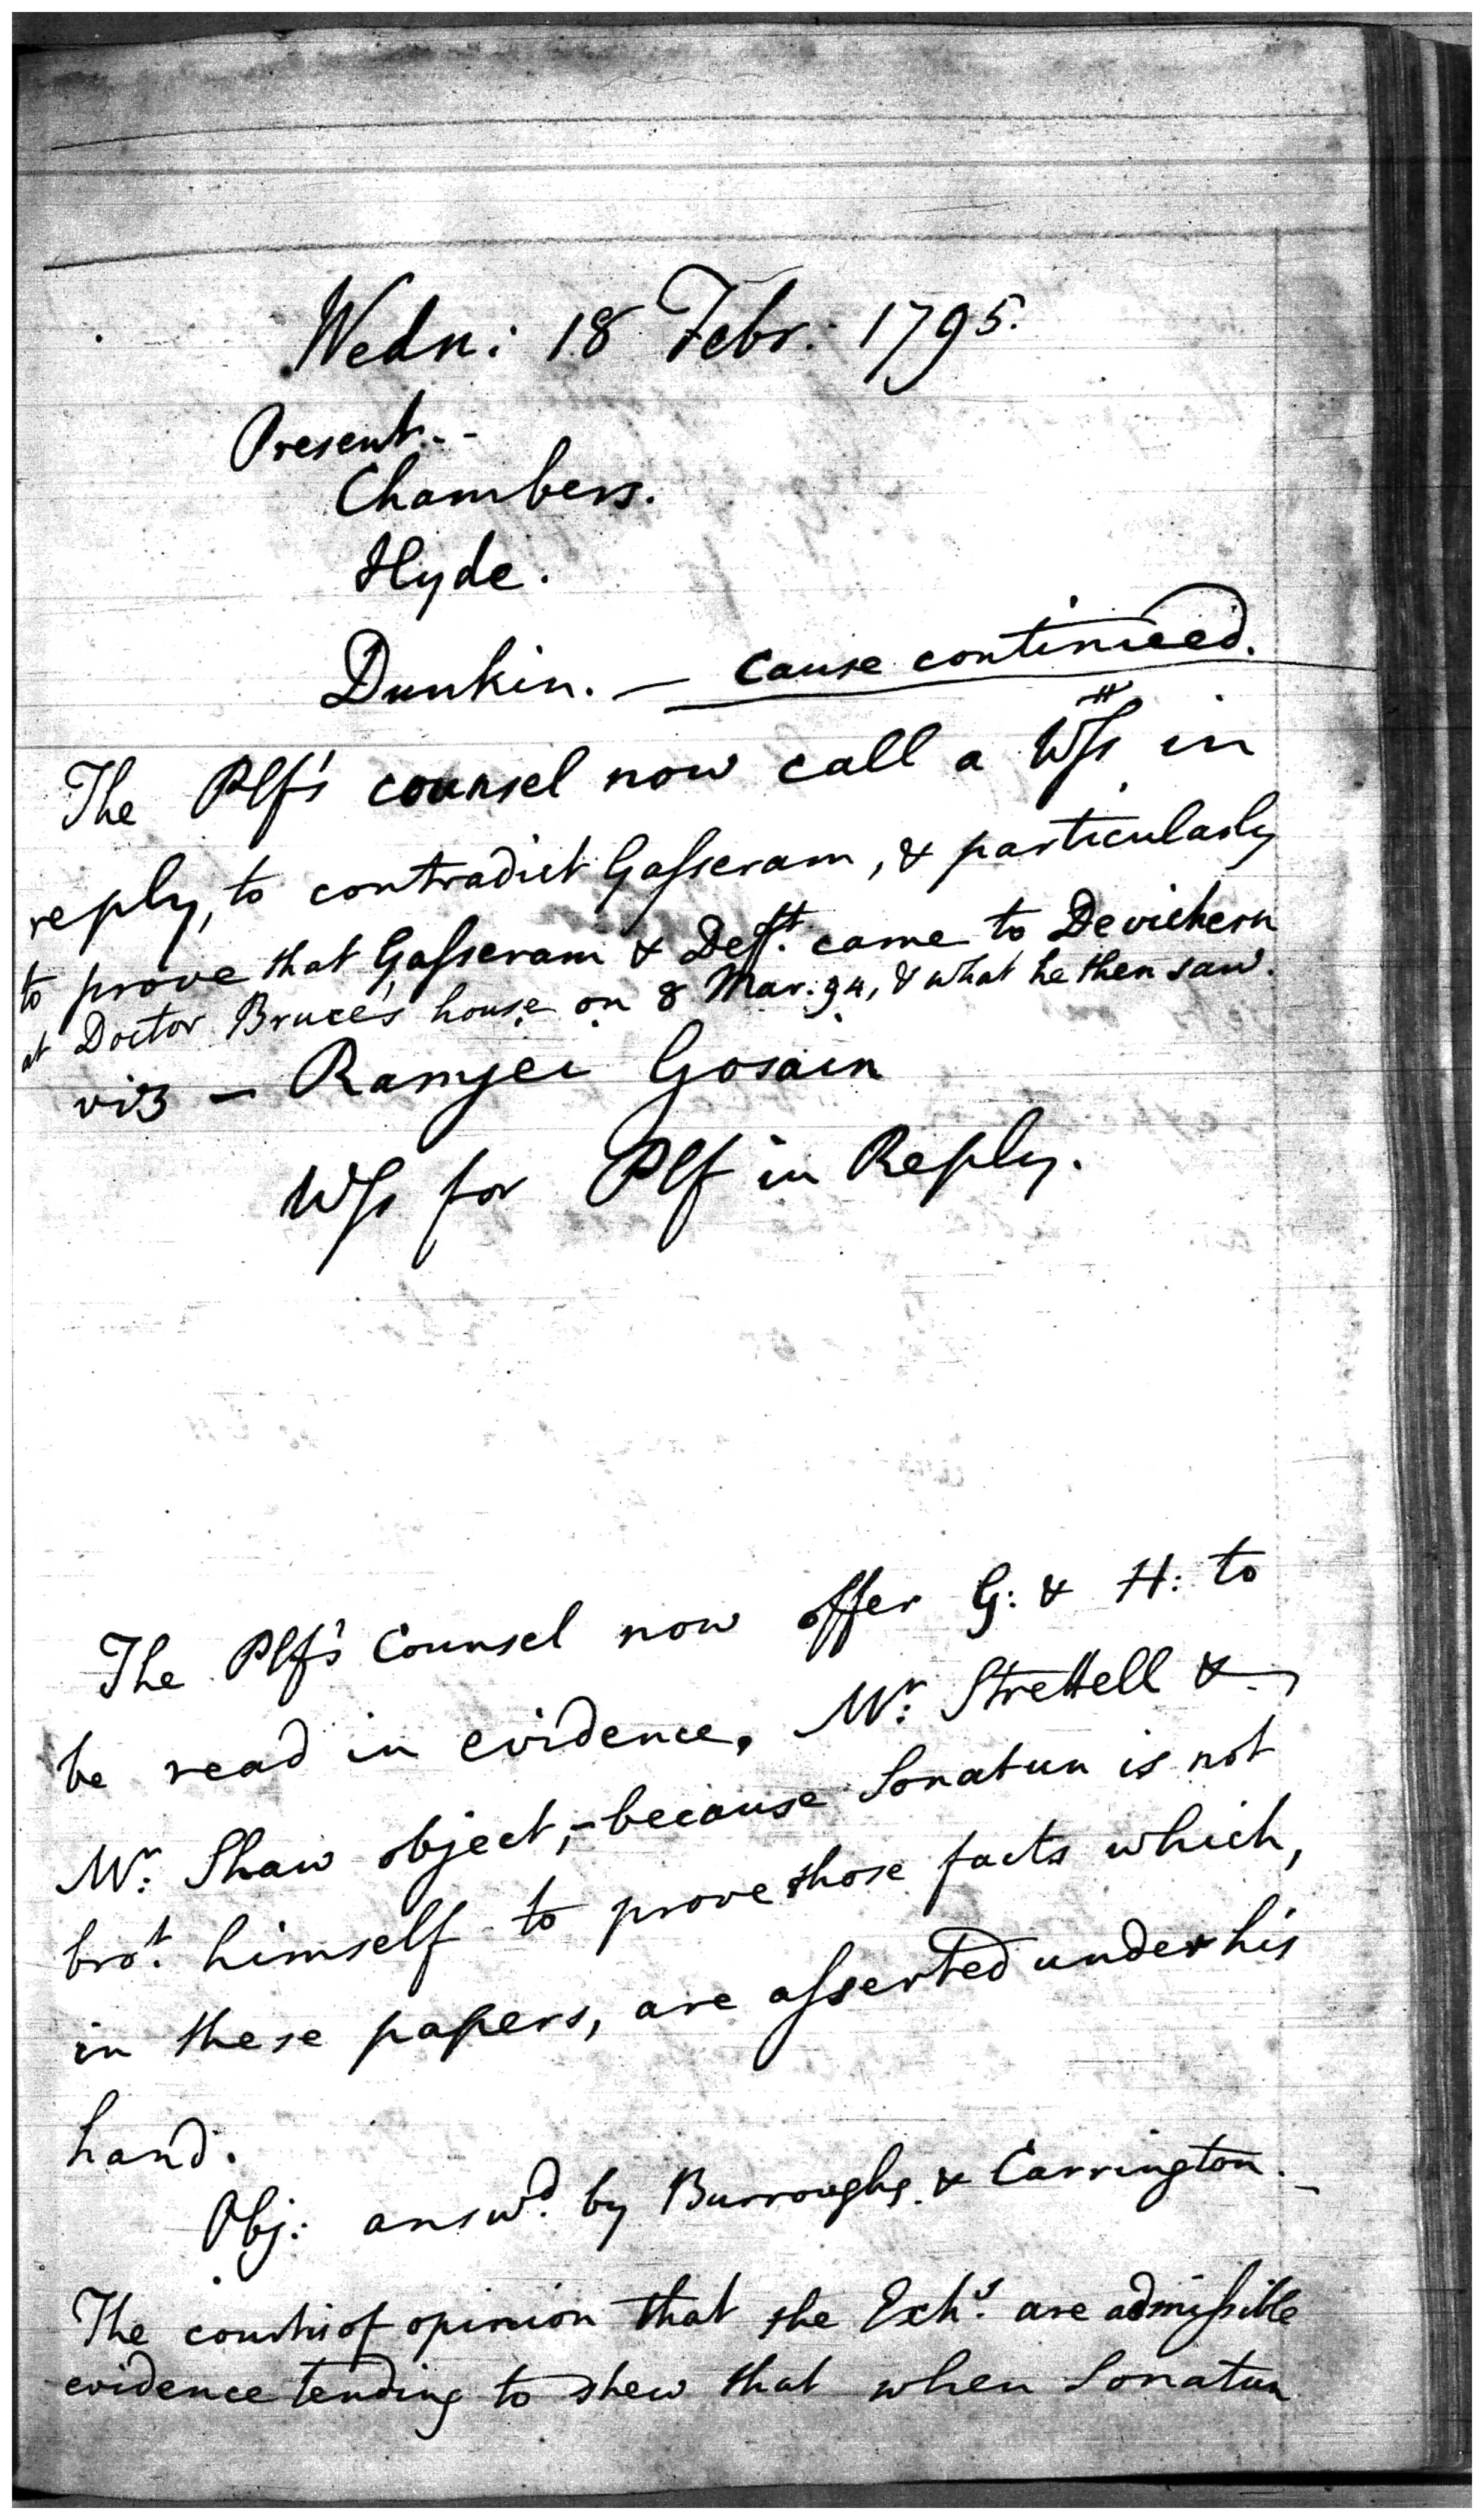 Wedn: 18 Febr: 1795.
Present.--
Chambers.
Hyde.
Dunkin. — cause continued.
The Plf's counsel now call a Wss in
reply, to contradict Gasseram, & particularly
to prove that Gasseram & Deft. came to
at Doctor Bruce's house on 8 Mar. 94, & what he then saw.
viz — Ramjei Gosain
Wss for Plf in Reply.
The Plf's Counsel now offer G: & H: to
be read in evidence, Mr: Strettell &
Mr: Shaw object,- because Sonatun is not
brot. himself to prove those facts which,
in these papers, are asserted under his
hand.
Obj: answd. by Burroughs & Carrington. -
The court is of opinion that the Exhs. are admissible
evidence tending to shew that when Sonatun